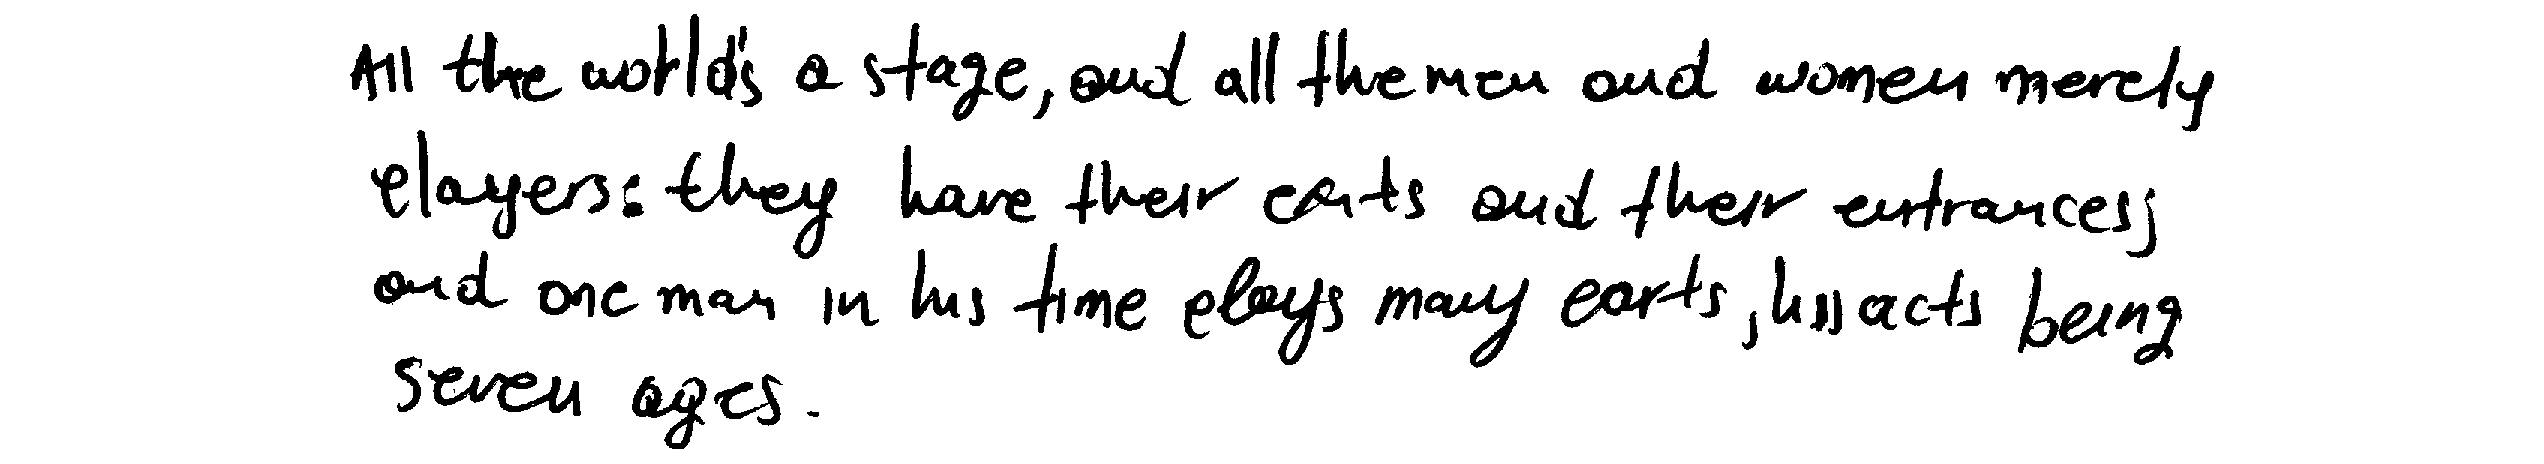 All the world's a stage, and all the men and women merely
players: they have their exits and their entrances;
and one man in his time plays many parts, his acts being
seven ages.